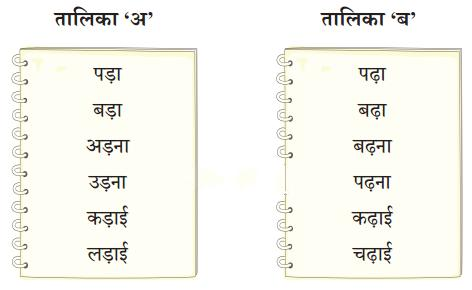 तालिका ‘अ’
पड़ा
बड़ा
अड़ना
उड़ना
कड़ाई
लड़ाई
तालिका ‘ब’
पढ़ा
बढ़ा
बढ़ना
पढ़ना
कढ़ाई
चढ़ाई